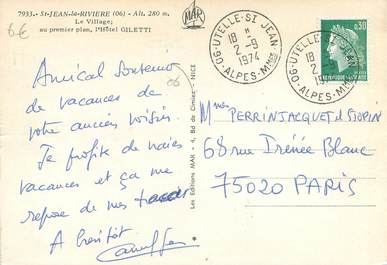 7933 - St-JEAN-la-RIVIERE (06) - Alt. 280 m.
Le Village;
au premier plan, l'Hôtel GILETTI
6€
MAR
06-UTELLE-St JEAN
18 H
2-9
1974
ALPES-Mmes
06-UTELLE-St JEAN
18 H
2-9
ALPES-Mmes
0,50
Amical Souvenir
de vacances de
votre ancien voisin.
Je profite de
vacances et ça me
repose de mes
A bientôt
06
Les Editions MAR - 4, Bd de Cimiez - NICE
Mmes PERRINJACQUET
68 rue Irénée Blanc
75020 PARIS